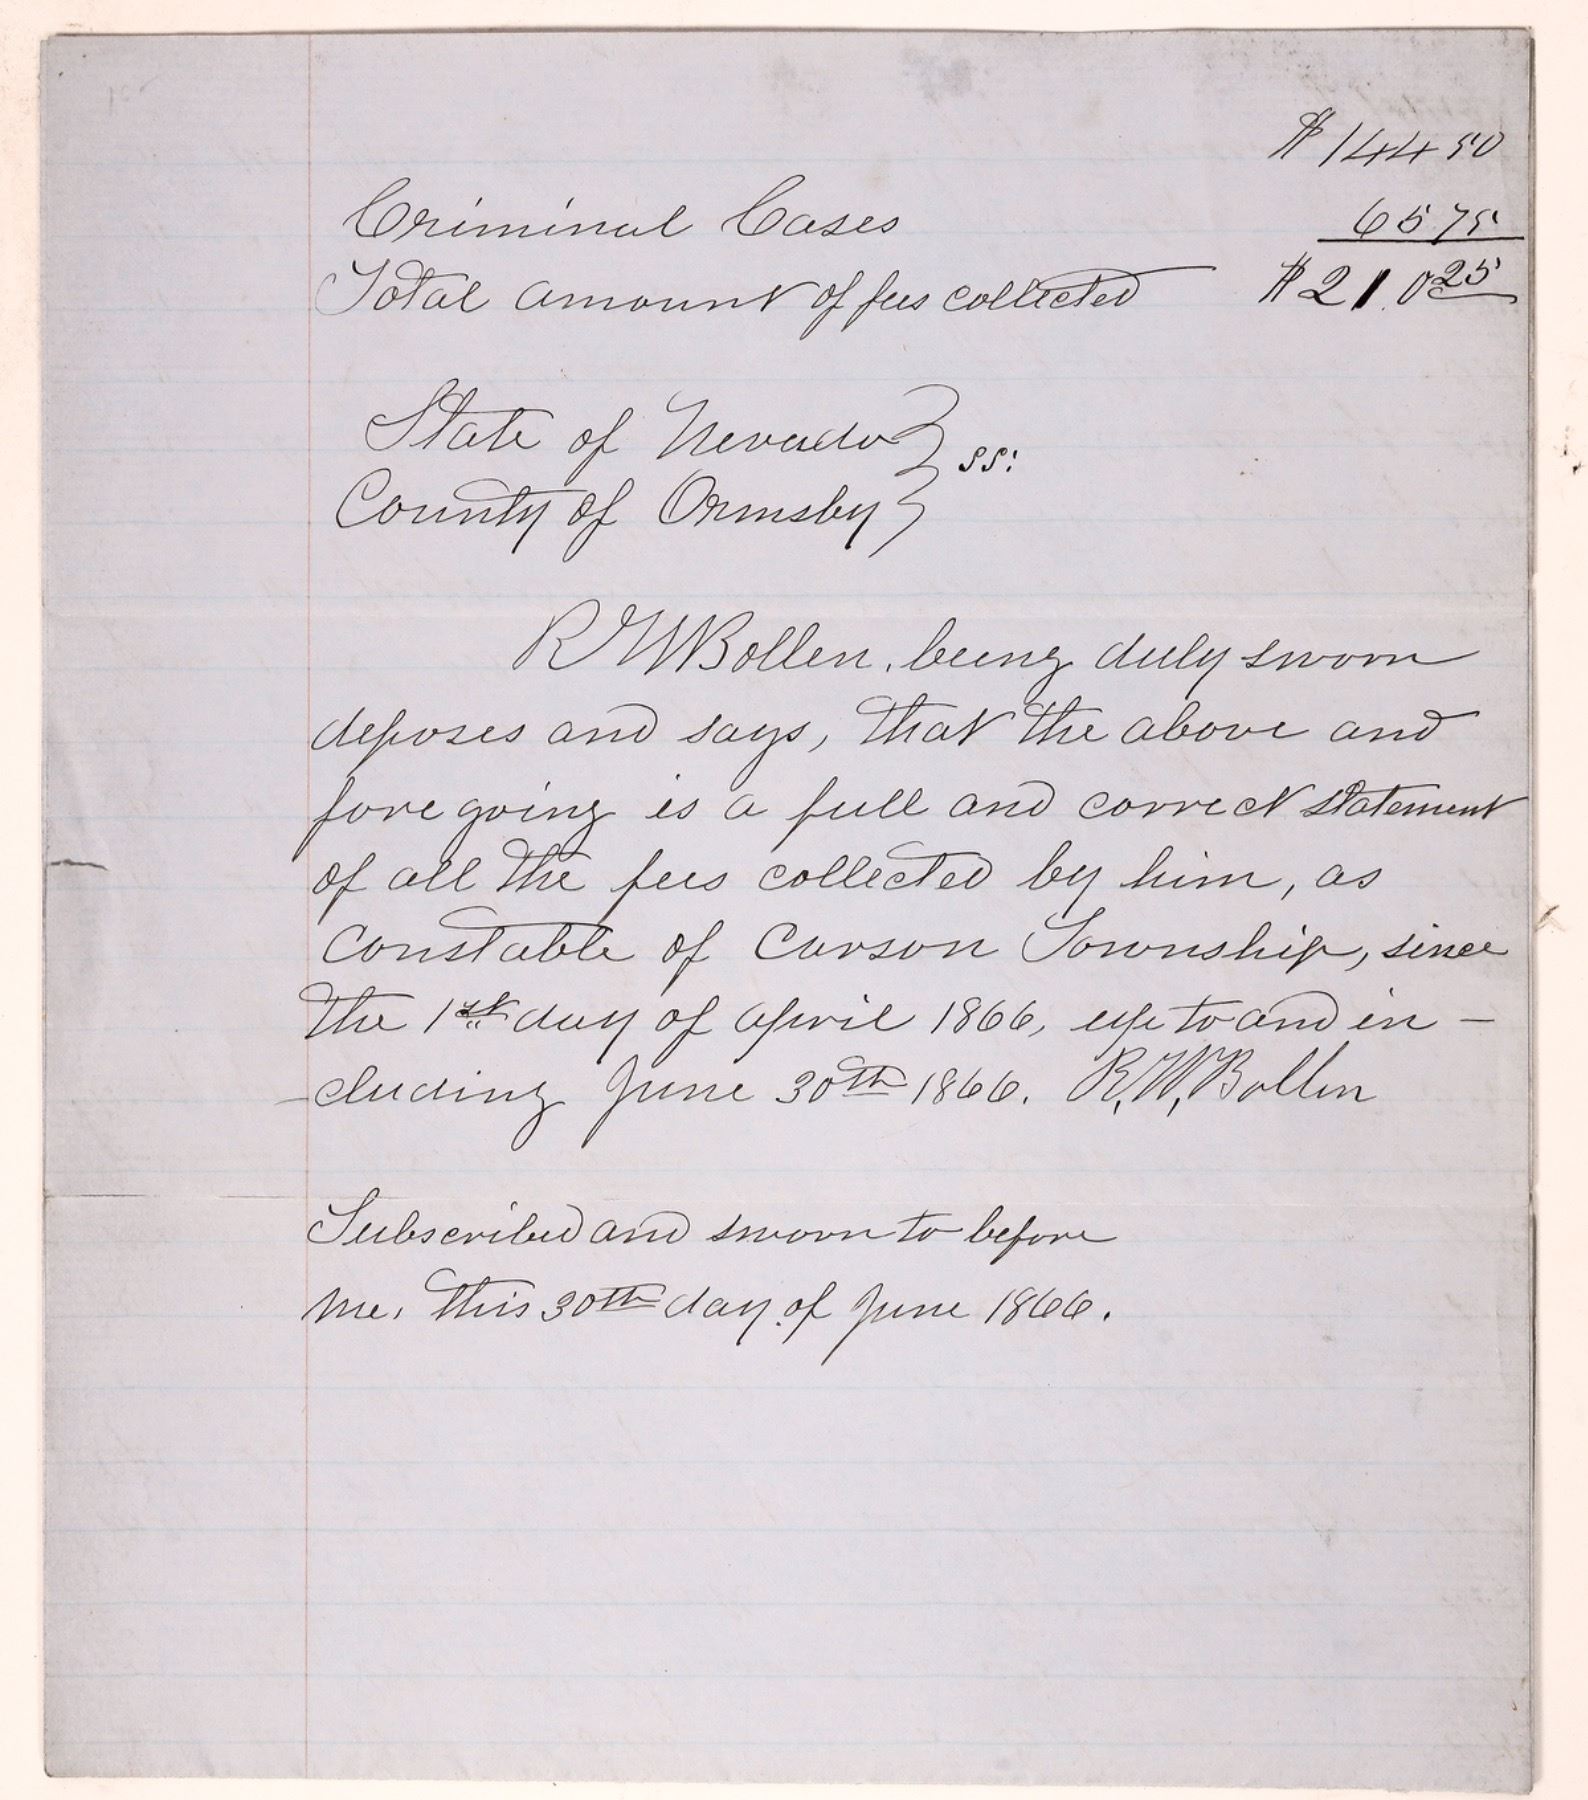 $ 144 50
Criminal Cases 65 75
Total amount of fees collected $ 210 25
State of Nevada } ss:
County of Ormsby }
R W Bollen, being duly sworn
deposes and says, that the above and
fore going is a full and correct statement
of all the fees collected by him, as
Constable of Carson Township, since
the 1st day of April 1866, up to and in –
–cluding June 30th 1866. R. W. Bollen
Subscribed and sworn to before
me, this 30th day of June 1866.